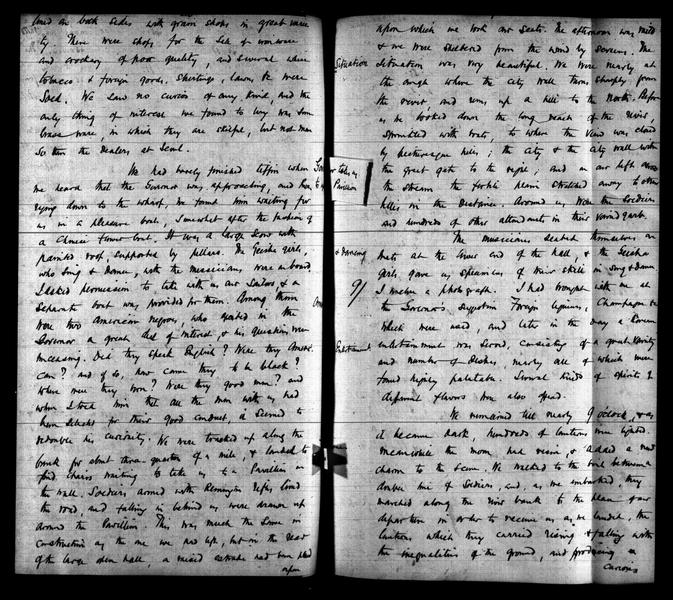 lined on both sides with grain shops in great varie
ty There were shops for the sale of ironware
and crockery of poor quality, and several where
tobacco & foreign goods. Shirtings, Lawns &c were
sold. We saw no curios of any kind, and the
only thing of interest we found to buy was some
brass ware, in which they are skilful, but not more
so than the dealers at Seoul.
We had barely finished tiffin when
we heard that the Governor was approaching, and
down to the wharf, we found him waiting for
us in a pleasure boat, somewhat after the fashion of
a Chinese flower boat. It was a large scow with
painted roof, supported by pillars. The Geisha girls,
who sing & dance, with the musicians were on board.
I asked permission to take with us our Sailors & a
separate boat was provided for them. Among them
were two American negroes, who excited in the
Governor a great deal of interest, & his questions were
unceasing. Did they speak English? Were they Ameri-
can? and if so, how came they to be black?
where were they born? Were they good men? and
when I told him that all the men with us had
been selected for their good conduct it seemed to
redouble his curiosity. We were tracked up along the
bank for about three-quarters of a mile, & landed to
find chairs waiting to take us to a Pavillion on
the wall. Soldiers armed with Remington rifles lined
the road, and falling in behind us were drawn up
around the Pavillion. This was much the same in
construction as the one we had left, but in the rear
of the large open hall, a raised estrade had been placed
upon
upon which we took our seats. The afternoon was mild
& we were sheltered from the wind by screens. The
Situation
situation was very beautiful. We were nearly at
the angle where the city wall turns sharply from
the river, and runs up a hill to the North. Before
us we looked down the long reach of the river,
sprinkled with boats, to where the view was closed
by picturesque hills; the city & the city wall with
the great gate to the right; and on our left
the stream the fertile plain stretched away to other
hills, in the distance. Around us were the Soldiers
and hundreds of other attendants in their varied garb.
Pavillion
The musicians seated themselves on
& dancing
mats at the lower end of the hall, & the Geisha
girls gave us specimens of their skill in song & dance
91
I made a photograph. I had brought with me at
the Governor's suggestion Foreign liquors, Champagne &c
which were used, and later in the day a Korean
Entertainment
entertainment was served, consisting of a great variety
and number of dishes, nearly all of which were
found highly palatable. Several kinds of spirits of
different flavors were also used.
We remained till nearly 9 o'clock, & as
it became dark, hundreds of lanterns were lighted.
Meanwhile the moon had risen, & added a new
charm to the scene. We walked to the boat between a
double line of Soldiers, and, as we embarked, they
marched along the river bank to the place of our
departure in order to receive us as we landed, the
lanterns which they carried rising & falling with
the inequalities of the ground, and producing a
curious